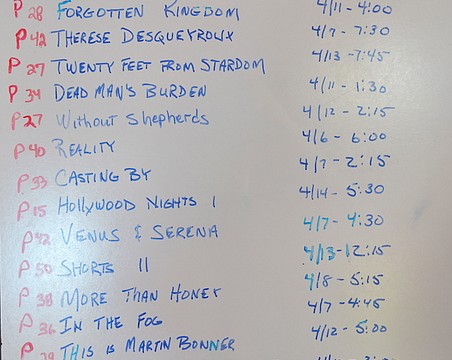 P 28 FORGOTTEN KINGDOM 4/11 - 4:00
P 42 THERESE DESQUEYROUX 4/7 - 7:30
P 27 TWENTY FEET FROM STARDOM 4/13 - 7:45
P 34 DEAD MAN'S BURDEN 4/11 - 1:30
P 27 Without Shepherds 4/12 - 2:15
P 40 REALITY 4/6 - 6:00
P 33 CASTING BY 4/7 - 2:15
P 15 HOLLYWOOD NIGHTS I 4/14 - 5:30
P 42 VENUS & SERENA 4/7 - 4:30
P 50 SHORTS II 4/13 - 12:15
P 38 MORE THAN HONEY 4/8 - 5:15
P 36 IN THE FOG 4/7 - 4:45
P 39 THIS IS MARTIN BONNER 4/12 - 5:00